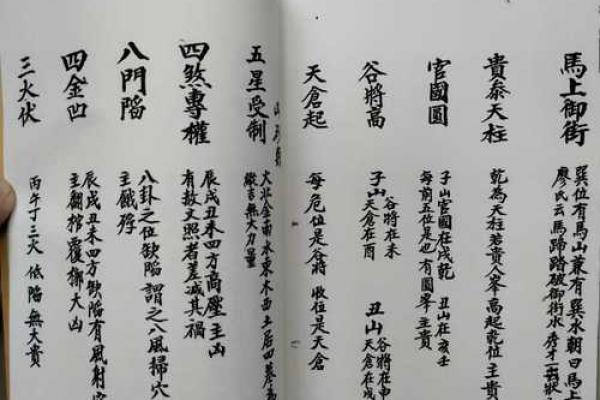 馬上御街
巽位有馬山兼有巽水朝曰馬上
廖氏云馬蹄踏破御街水秀才一
貴泰天柱
乾為天柱若貴人峯高起乾位主貴
官國圓
子山官國在戌乾 丑山在亥壬
每前五位是也有圓峯主貴
谷將高
子山 谷將在未 天倉在酉
丑山 谷將在申 天倉在戌
天倉起
每危位是谷將 收位是天倉
五星受制
火北金南水東木西土居四墓為
縱吉無大力量
四煞專權
辰戌丑未四方高壓主凶
有赦文照者差減其禍
八門陷
八卦之位缺陷謂之八風掃穴
主餓殍
四金凹
辰戌丑未四方缺陷有風射穴
主翻棺覆槨大凶
三火伏
丙午丁三火低陷無大貴